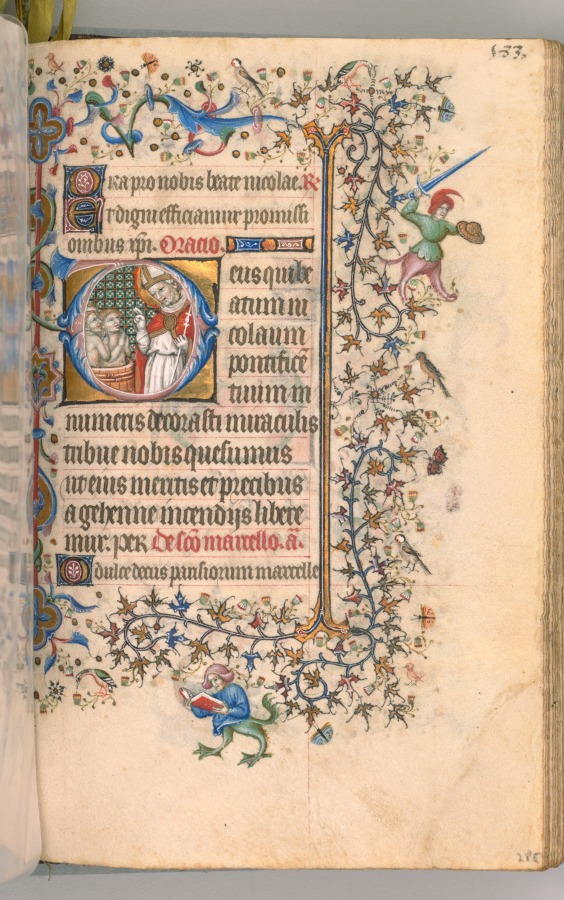 133.
Ora pro nobis beate nicolae. R.
Et digni efficiamur promissi
onibus xpi. Oracio.
Deus qui be
atum ni
colaum
pontificē
tuum in
numeris decorasti miraculis
tribue nobis quesumus
ut eius meritis et precibus
a gehenne incendijs libere
mur. per. De scō marcello. a.
O dulce decus parisiorum marcelle